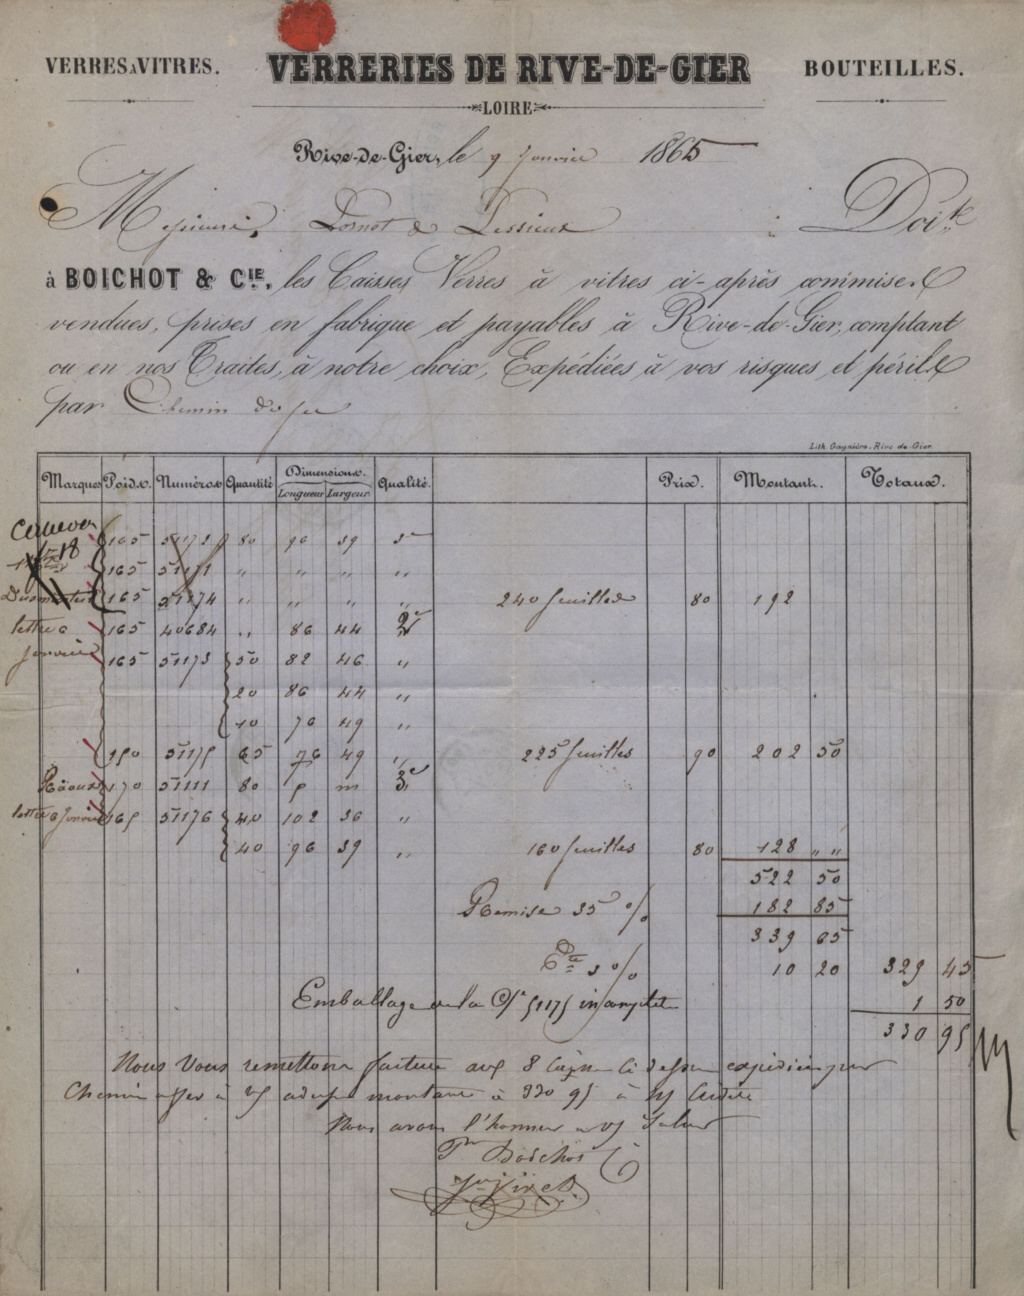 VERRES A VITRES. VERRERIES DE RIVE-DE-GIER BOUTEILLES.
LOIRE
Rive-de-Gier, le 9 Janvier 1865
Messieurs Dornot & Lessieux Doiv.t
à BOICHOT & CIE, les Caisses Verres à vitres ci-après commises
vendues, prises en fabrique et payables à Rive-de-Gier, comptant
ou en nos Traites, à notre choix, Expédiées à vos risques et périls
par Chemin de fer
Lith. Gaynière, Rive de Gier.
Marques Poids. Numéros Quantité Dimensions. Longueur Largeur Qualité. Prix. Montant. Totaux.
165 51172 80 90 39 3e
165 51171 " " " "
165 51174 " " " " 240 feuilles 80 192
lettre 6 165 40684 " 86 44 2e
Janvier 165 51173 50 82 46 "
20 86 44 "
10 70 49 "
150 51175 65 76 49 " 225 feuilles 90 202 50
170 51111 80 p m 3e
lettre 6 Janvier 165 51176 40 102 36 "
40 96 39 " 160 feuilles 80 128 " "
522 50
Remise 35 % 182 85
339 65
Cte 3 % 10 20 329 45
Emballage de la Cse 51175 1 50
330 95
Nous Vous remettons facture aux 8 Caisses Ci dessus expédiées par
Chemin de fer à montant à 330 95 à
Nous avons l'honneur de vs Saluer
Pr Boichot Cie